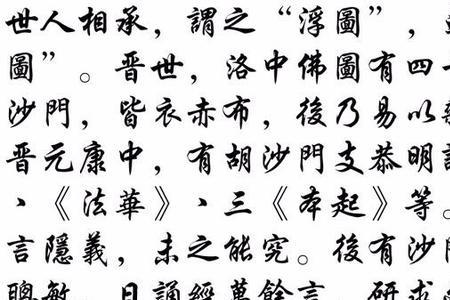 世人相承，謂之“浮圖”，
圖”。晉世，洛中佛圖有四
沙門，皆衣赤布，後乃易以
晉元康中，有胡沙門支恭明
、《法華》、三《本起》等。
言隱義，未之能究。後有沙門
聰敏，日誦經萬餘言，研求